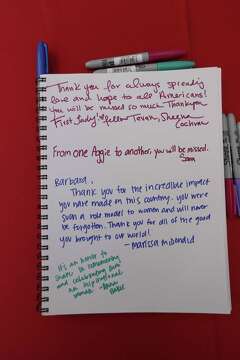 Thank you for always spreading
love and hope to all Americans!
You will be missed so much. Thank you
First Lady & fellow Texan, Sheena
Cochran
From one Aggie to another, you will be missed.
Sam
Barbara,
Thank you for the incredible impact
you have made on this country. You were
such a role model to women and will never
be forgotten. Thank you for all of the good
you brought to our world!
- Marissa McDonald
It's an honor to
share in remembering
and celebrating such
an inspirational
woman -